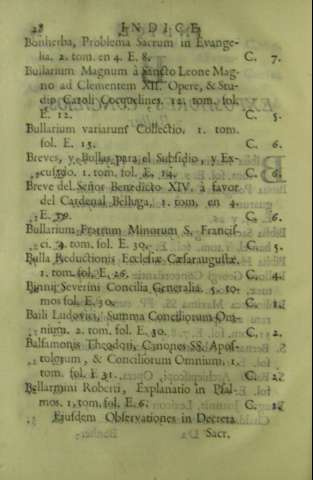 28 INDICE
Bonherba, Problema Sacrum in Evange-
lia. 2. tom. en 4. E. 8. C. 7.
Bullarium Magnum à Sancto Leone Mag-
no ad Clementem XII. Opere, & Stu-
dio Caroli Cocquelines. 12. tom. fol.
E. 12. C. 5.
Bullarium variarum Collectio. 1. tom.
fol. E. 13. C. 6.
Breves, y Bullas para el Subsidio, y Ex-
cusado. 1. tom. fol. E. 14. C. 6.
Breve del Señor Benedicto XIV. à favor
del Cardenal Belluga, 1. tom. en 4.
E. C. 6.
Bullarium Fratrum Minorum S. Francis-
ci. 4. tom. fol. E. 30. C. 5.
Bulla Reductionis Ecclesiæ Cæsaraugustæ.
1. tom. fol. E. 26. C. 4.
Binnij Severini Concilia Generalia. 5. to-
mos fol. E. 30. C. 1.
Baili Ludovici, Summa Conciliorum Om-
nium. 2. tom. fol. E. 30. C. 2.
Balsamonis Theodori, Canones SS. Apos-
tolorum, & Conciliorum Omnium. 1.
tom. fol. E 31. C. 2.
Bellarmini Roberti, Explanatio in Psal-
mos. 1. tom. fol. E. 6. C.
Ejusdem Observationes in Decreta
Sacr.